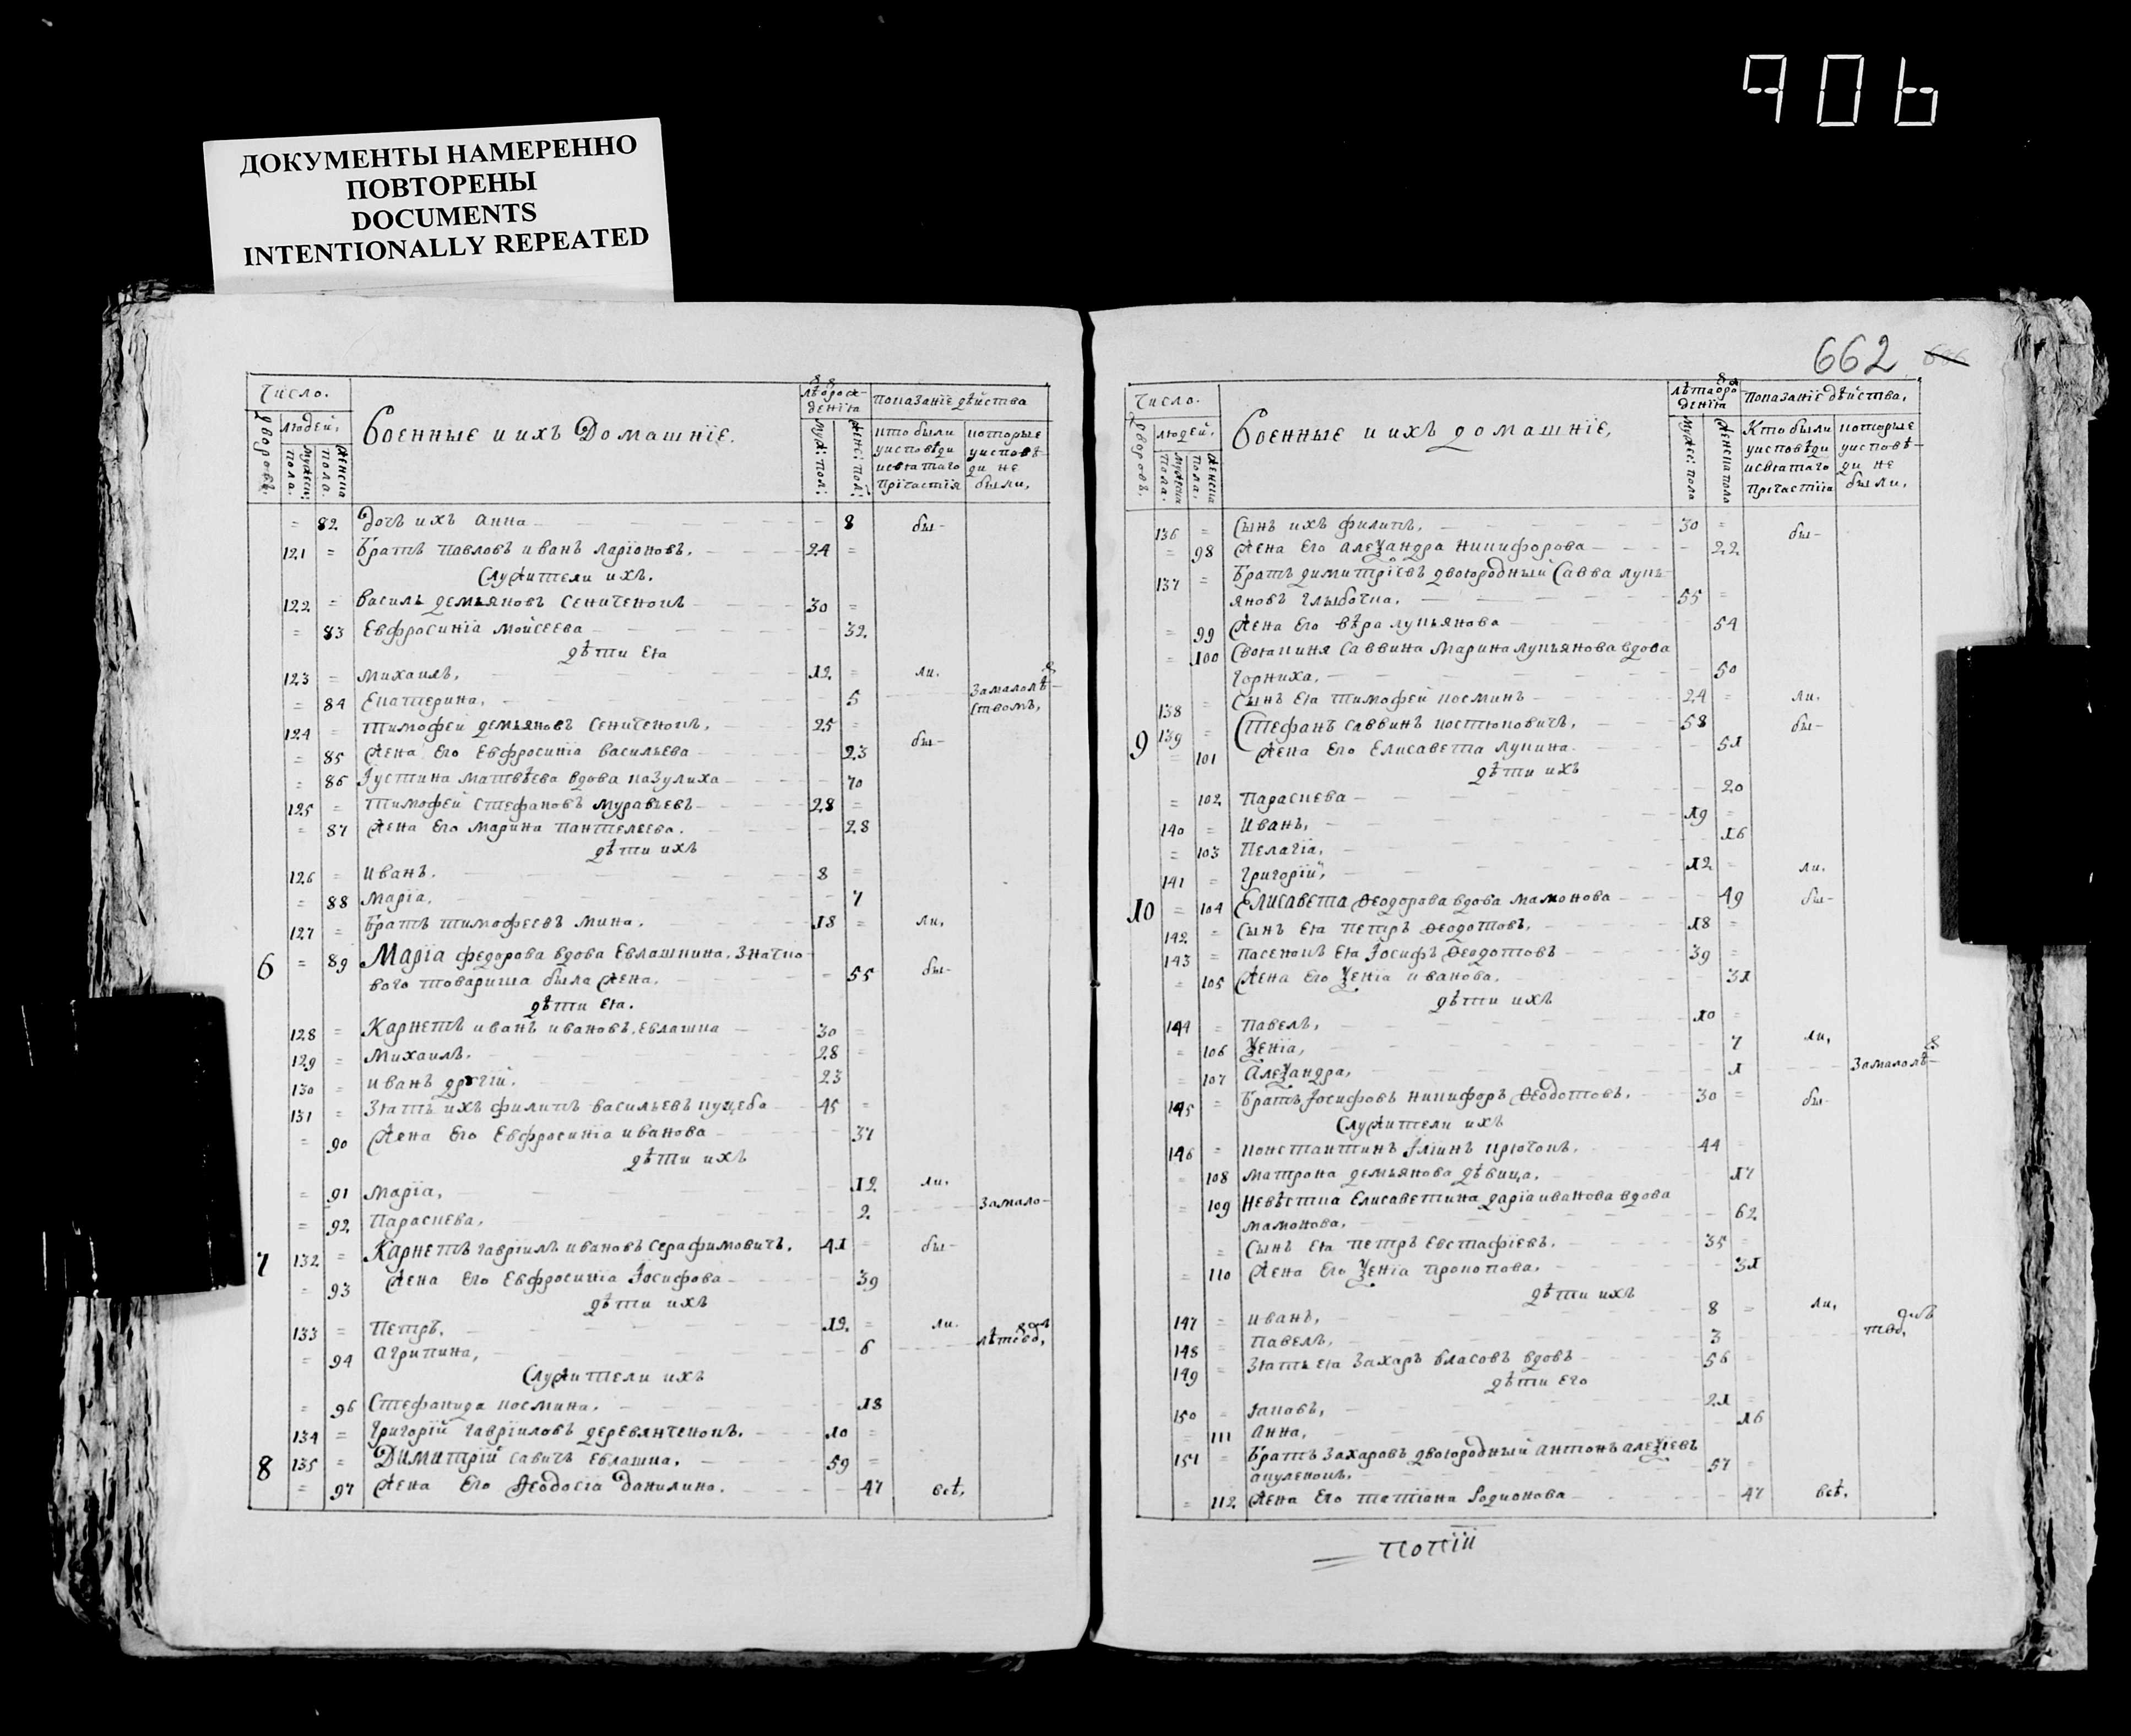 906
ДОКУМЕНТЫ НАМЕРЕННО
ПОВТОРЕНЫ
DOCUMENTS
INTENTIONALLY REPEATED
Число.
Военные и ихъ Домашнїе.
показанїе дѣйства
дворовъ.
людей.
мужеск: пола.
женска пола.
муж: пол:
женс: пол:
кто были у исповѣди и святаго причастїя
которые у исповѣди не были,
= 82 дочь ихъ Анна 8 бы-
121 = Братъ павловъ иванъ ларїоновъ. 24 =
Служители ихъ.
122 = василь демьяновъ сениченокъ 30 =
= 83 Евфросинїа мойсеева 32
дѣти ея
123 = михаилъ, 12 = ли.
= 84 Екатерина, 5 замалолѣтствомъ,
124 = тимофей демьяновъ сениченокъ, 25 =
= 85 жена Его Евфросинїа васильева 23 бы-
= 86 Їустина матвѣева вдова казулиха 70
125 = тимофей стефановъ муравьевъ 28 =
= 87 жена Его марина пантелеева. 28
дѣти ихъ
126 = иванъ. 8 =
= 88 марїа, 7
127 = Братъ тимофеевъ мина. 18 = ли,
6 = 89 Марїа федорова вдова Евлашкина, значко-
вого товариша была жена, 55 бы-
дѣти ея.
128 = Карнетъ иванъ ивановъ Евлашка 30 =
129 = михаилъ. 28
130 = иванъ другїй. 23
131 = зять ихъ филипъ васильевъ куцеба 45 =
= 90 жена Его Евфросинїа иванова 37
дѣти ихъ
= 91 марїа, 12 ли,
= 92 параскева, 2 замало-
7 132 = Карнетъ гаврїилъ ивановъ серафимовичъ. 41 = бы-
= 93 жена Его Евфросинїа Їосифова 39
дѣти ихъ
133 = петръ, 12 = ли.
= 94 агрипина, 6 лѣтсвод,
служители ихъ
= 96 Стефанида космина. 18
134 = григорїй гаврїиловъ деревянченокъ. 10 =
8 135 = Димитрїй савичъ Евлашка. 59 =
= 97 жена Его Ѳеодосїа данилина. 47 всѣ,
662
Число.
Военные и ихъ домашнїе,
показанїе дѣйства,
дворовъ.
людей.
мужеска пола.
женска пола.
мужес: пола
женска пола
Кто были у исповѣди и святаго причастїя
которые у исповѣди не были,
136 = Сынъ ихъ филипъ, 30 = бы-
= 98 жена Его алеѯандра никифорова 22
137 = Братъ димитрїевъ двоюродный Савва лукь-
яновъ глыбочка, 55 =
= 99 жена Его вѣра лукьянова 54
= 100 Своякиня саввина марина лукьянова вдова
горниха, 50
138 = Сынъ ея тимофей косминъ 24 = ли.
9 139 = Стефанъ саввинъ костюковичъ, 58 бы-
= 101 жена Его Елисавета лукина 51
дѣти ихъ
= 102 параскева 20
140 = иванъ, 19 =
= 103 пелагїа, 16
141 = григорїй, 12 = ли.
10 = 104 Елисавета Ѳеодорова вдова мамонова 49 бы-
142 = сынъ ея петръ Ѳеодотовъ, 18 =
143 = пасенокъ ея Їосифъ Ѳеодотовъ 39 =
= 105 жена Его Ѯенїа иванова. 31
дѣти ихъ
144 = павелъ, 10 =
= 106 Ѯенїа, 7 ли,
= 107 алеѯандра, 1 замалолѣ-
145 = Братъ Їосифовъ никифоръ Ѳеодотовъ. 30 = бы-
служители ихъ
146 = константинъ Їлїинъ крючокъ. 44
= 108 матрона демьянова дѣвица. 17
= 109 Невѣстка Елисаветина дарїа иванова вдова
мамонова, 62
= Сынъ ея петръ Евстафїевъ. 35 =
= 110 жена Его Ѯенїа прокопова. 31
дѣти ихъ
147 = иванъ, 8 = ли,
148 = павелъ, 3
149 = зять ея захаръ власовъ вдовъ 56 =
дѣти его
150 = Їаковъ, 21 =
= 111 анна, 16
151 = Братъ захаровъ двоюродный антонъ алеѯїевъ
акуленокъ. 57 =
= 112 жена Его татїана родионова 47 всѣ.
копїи